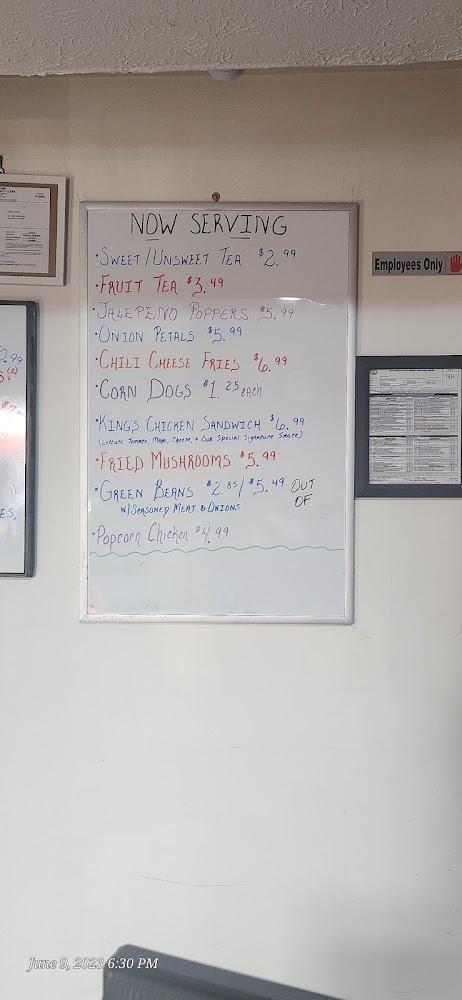 NOW SERVING
•SWEET/UNSWEET TEA $2.99
•FRUIT TEA $3.49
•JALEPENO POPPERS $5.99
•ONION PETALS $5.99
•CHILI CHEESE FRIES $6.99
•CORN DOGS $1.25 each
•KING'S CHICKEN SANDWICH $6.99
(Lettuce, Tomato, Mayo, Cheese, + Our Special Signature Sauce)
•FRIED MUSHROOMS $5.99
•GREEN BEANS $2.85/$5.49 OUT OF
W/SEASONED MEAT & ONIONS
•Popcorn Chicken $4.99
Employees Only
98
June 9, 2023 6:30 PM